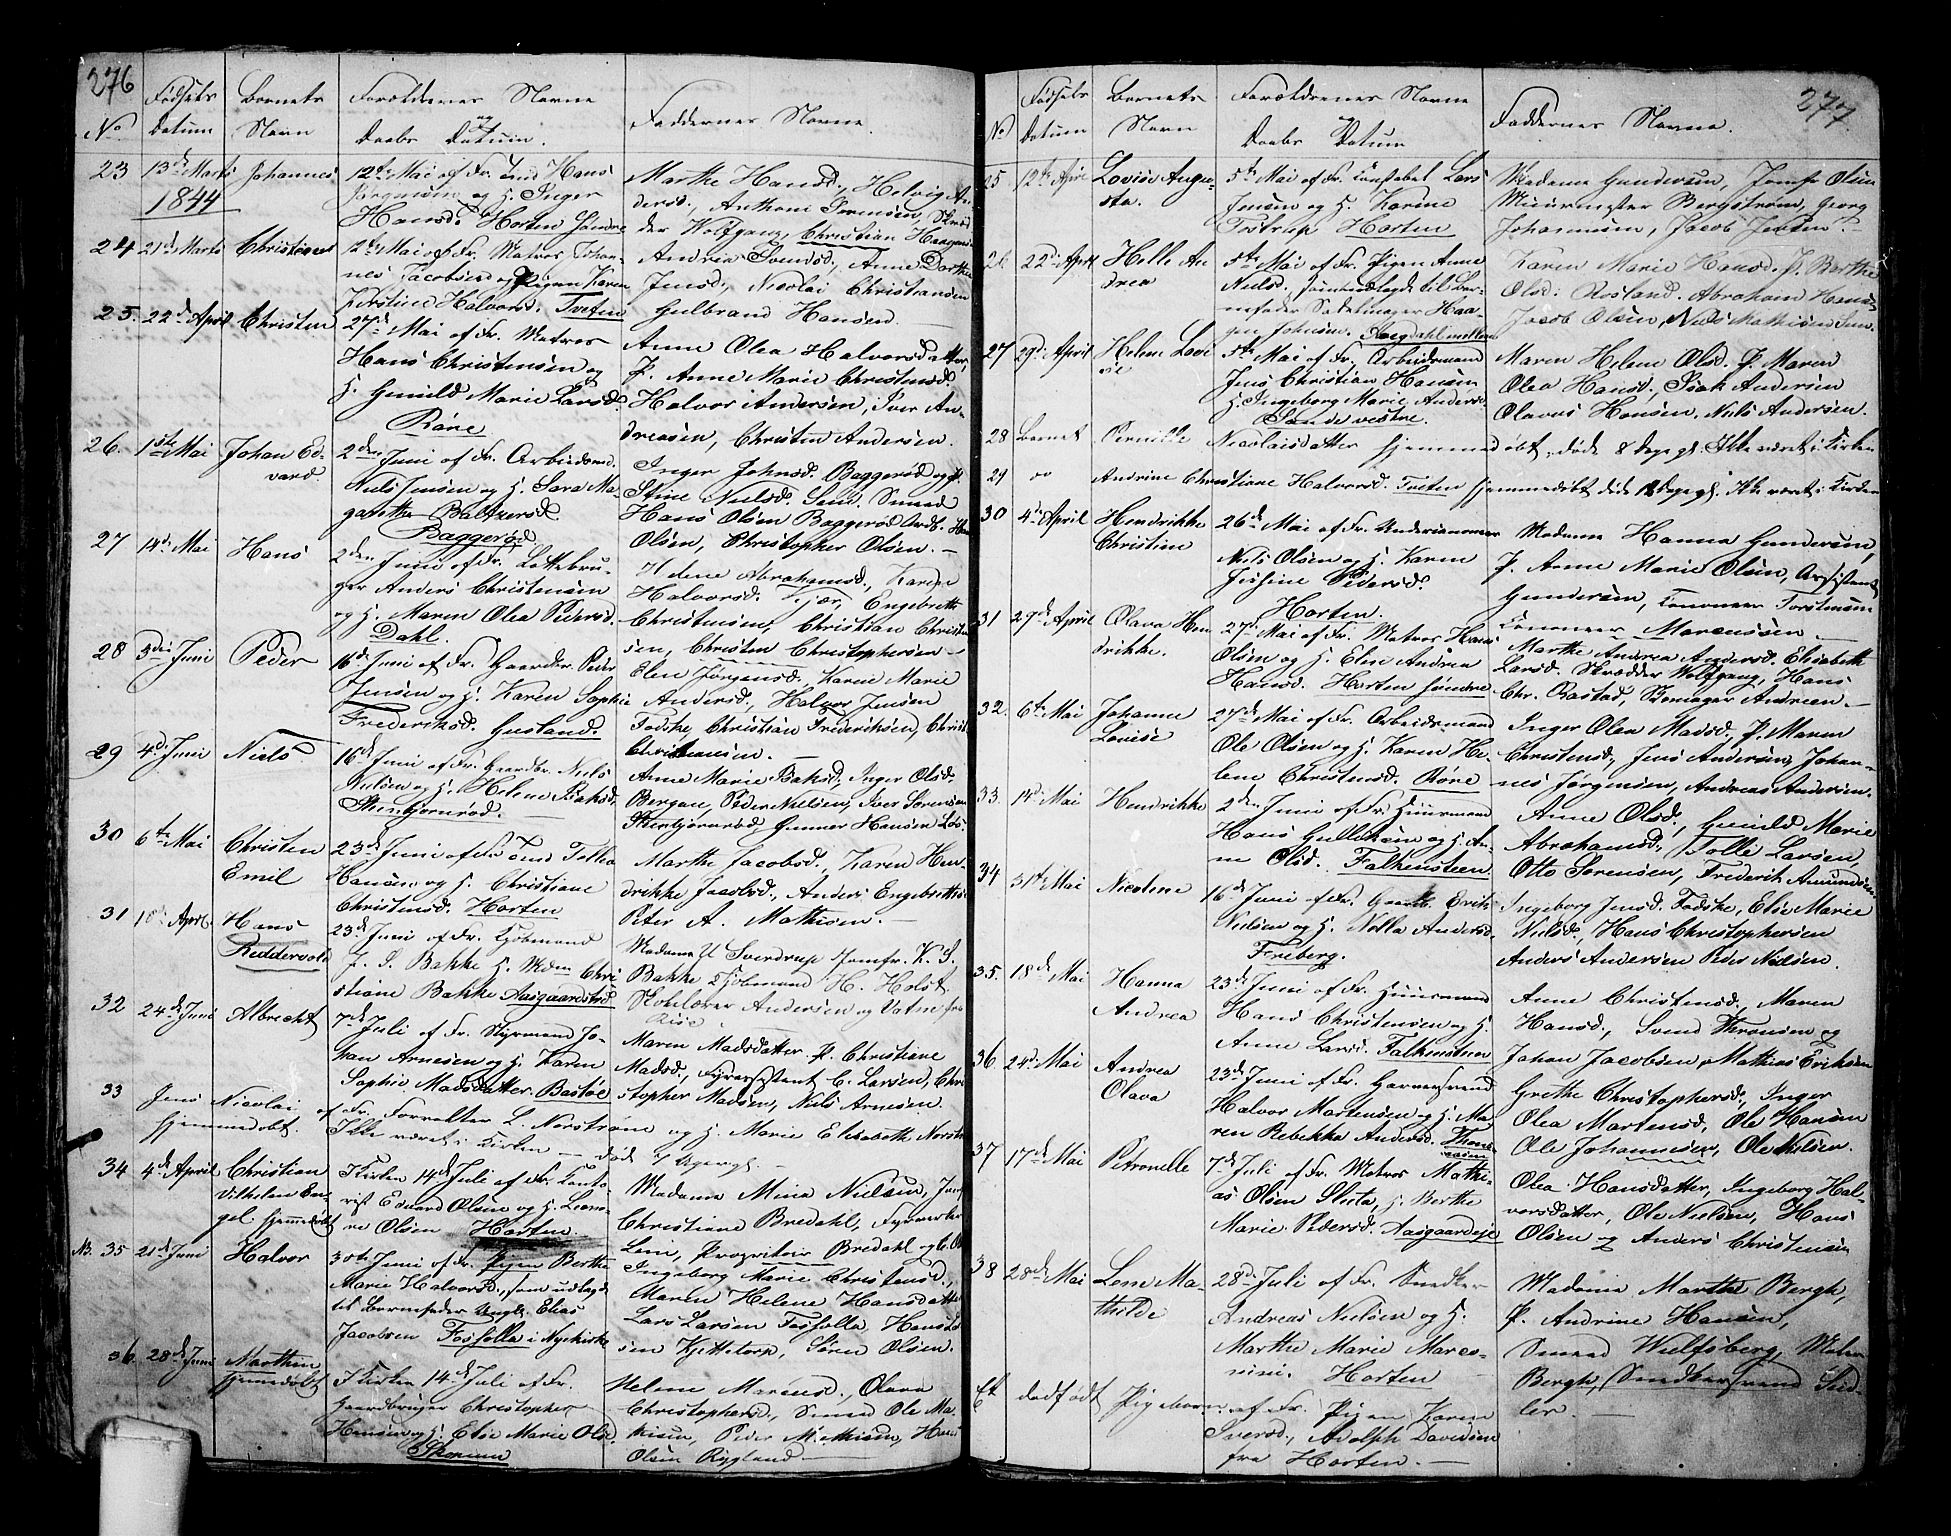 276
No
Fødsels
Datum
Barnets
Navn
Forældrenes Navne
og
Daabs Datum.
Faddernes Navne.
23 13de Marts Johannes
1844
12te Mai af Fr. Hans
og H. Inger
Hansd. Horten Søndre
Marthe Hansd., Helvig An-
dersd., Anthoni Sørensen, Skræd
der Wolfgang, Christian Haagensen
24 21de Marts Christian
2den Mai af Fr. Matros Johan-
nes Jacobsen og Pigen Karen
Kirstine Halvorsd. Tveten
Andrea Svendsd., Anne Dorthea
Jensd., Nicolai Christiansen
Gulbrand Hansen
25. 22de April Christen
27de Mai af Fr. Matros
Hans Christensen og
H. Gunild Marie Larsd.
Røre
Anne Olea Halvorsdatter,
P. Anne Marie Christensd.
Halvor Andersen, Iver An-
dreasen, Christen Andersen.
26. 1ste Mai Johan Ed-
vard.
2den Juni af Fr. Arbeidsmd.
Niels Jensen og H. Sara Ma-
grethe Baltzersd.
Baggerød
Inger Johnsd. Baggerød og P.
Stine Nielsd. Smed
Hans Olsen Baggerød
Olsen, Christopher Olsen.
27 14de Mai Hans
2den Juni af Fr. Leilebru-
ger Anders Christensen
og H. Maren Olea Pedersd.
Dahl.
Helene Abrahamsd., Karen
Halvorsd. Kjær, Engebreth
Christensen, Christian Christen
sen, Christen Christophersen
28 3die Juni Peder
16de Juni af Fr. Gaardbr. Peder
Jensen og H. Karen Sophie
Frederiksd. Gusland.
Elen Jørgensd. Karen Marie
Andersd., Halvor Jensen
Fadske, Christian Frederiksen, Christ.
Christensen.
29 4de Juni Niels
16de Juni af Fr. Gaardbr. Niels
Nielsen og H. Helene Isaksd.
Skenbjørnrød.
Anne Marie Isaksd., Inger Olsd.
Bergan, Peder Nielsen, Iver Sørensen
Skenbjørnrød Gunner Hansen
30 6te Mai Christen
Emil
23de Juni af Fr. Tolka
Hansen og H. Christiane
Christensd. Horten
Marthe Jacobsd., Karen Hen-
drikke Jacobsd., Anders Engebrethsen
Peter A. Mathisen.
31 18de April Hans
Riddervold
23de Juni af Fr. Kjøbmand
J. S. Bakke H. Mdm Chri-
stiane Bakke Aasgaardstrand
Madame Sverdrup Jomfr. K. S.
Bakke Kjøbmand H. Holst
Skolelærer Andersen og Vatne fra
Rise
32 24de Juni Albrecht
7de Juli af Fr. Styrmand Jo-
han Arnesen og H. Karen
Sophie Madsdatter. Bastøe
Maren Madsdatter. P. Christiane
Madsd., Fyrassistent C. Larsen, Chri
stopher Madsen, Niels Arnesen.
33 Jens Nicolai af Fr. Forvalter L. Norstrøm og H. Marie Elisabeth Norstrøm
hjemmedøbt. Ikke været i Kirken — død 7 Uger gl.
34 4de April Christian
Vilhelm En-
gel. hjemmedøbt
I Kirken 14de Juli af Fr. Konto-
rist Eduard Olsen og H. Leono-
re Olsen Horten.
Madame Mina Nielsen, Jomfr
Christiane Bredahl, Fyrverker
Lein, Proprietair Bredahl og
NB. 35 21de Juni Halvor
30te Juni af Fr. Pigen Berthe
Marie Halvorsd., som udlagde
til Barnefader Ungk. Elias
Jacobsen Fosfolla i Nykirke
Ingeborg Marie Christensd.,
Maren Helene Hansdatter
Lars Larsen Fosfolla, Hans
sen Kjettetorp, Søren Olsen.
36. 28de Juni Marthin
hjemmedøbt
I Kirken 14de Juli af Fr.
Gaardbruger Christopher
Hansen og H. Else Marie Olsd
Skopum
Helene Marensd., Olava
Christophersd., Smed Ole Ma-
thisen, Peder Mathisen, Hans
Olsen Rygland
277.
No
Fødsels
Datum
Barnets
Navn
Forældrenes Navne
og
Daabs Datum
Faddernes Navne.
25 12te April Lovise Augu-
sta.
5te Mai af Fr. Konstabel Lars
Jensen og H. Karine
Tostrup Horten
Madame Gundersen, Jomfr Olsen
Muurmester Bergstrøm, Georg
Johannesen, Jacob Jensen.
26 22de April Helle An
drea
5te Mai af Fr. Pigen Anne
Nielsd., som udlagde til Bar-
nefader Sadelmager Haa-
gen Johnsen.
Karen Marie Hansd. P. Berthe
Olsd. Rosland. Abraham Hansen
Jacob Olsen, Niels Mathisen
27 29de April Helene Lovi
se
5te Mai af Fr. Arbeidsmand
Jens Christian Hansen
H. Ingeborg Marie Andersd.
Sande vestre.
Maren Helene Olsd. P. Maren
Olea Hansd., Isak Andersen
Olavus Hansen, Niels Andersen.
28 Barnet Pernille Nicolaisdatter hjemmedøbt, døde 8 Dage gl. Ikke været i Kirken
29 " Andrine Christiane Halvorsd. Tveten hjemmedøbt døde 18 Dage gl. Ikke været i Kirken
30 4de April Hendrikke
Christine
26de Mai af Fr. Underkanoner
Niels Olsen og H. Karen
Josine Pedersd.
Horten.
Madame Hanna Gundersen,
P. Anne Marie Olsen, Assistent
Gundersen, Kanoneer Torstensen
Kanoneer Marcussen
31 29de April Olava Hen
drikke.
27de Mai af Fr. Matros Hans
Olsen og H. Elise Andrea
Hansd. Horten søndre
Marthe Andrea Andersd. Elisabeth
Larsd. Skrædder Wolfgang, Hans
Chr. Bastad, Bomager Andreen.
32. 6te Mai Johanne
Lovise
27de Mai af Fr. Arbeidsmand
Ole Olsen og H. Karen He-
lene Christensd. Røre
Inger Olea Madsd., P. Maren
Christensd., Jens Andersen, Johan-
nes Jørgensen, Andreas Andersen.
33. 14de Mai Hendrikke
2den Juni af Fr. Huusmand
Hans Gulliksen og H. An-
ne Olsd. Falkensteen
Anne Olsd., Gunild Marie
Abrahamsd., Tolle Larsen,
Otto Sørensen, Frederik Amundsen
34 31te Mai Nicoline
16de Juni af Fr. Gaardb. Erik
Nielsen og H. Nella Andersd.
Freberg.
Ingeborg Jensd. Fadske, Else Marie
Nielsd., Hans Christophersen
Anders Andersen Peder Nielsen.
35. 18de Mai Hanna
Andrea
23de Juni af Fr. Huusmand
Hans Christensen og H.
Anne Larsd. Falkensteen
Anne Christensd., Maren
Hansd., Svend Thronsen og
Johan Jacobsen, Mathias Eriksen
36 24de Mai Andrea
Olava
23de Juni af Fr. Garversvend
Halvor Martensen og H. Ma-
ren Rebekka Andersd.
Grethe Christophersd., Inger
Olea Martensd., Ole Hansen
Ole Johannesen, Ole Nielsen.
37 17de Mai Petronelle
7de Juli af Fr. Matros Mathi-
as Olsen Sletta, H. Berthe
Marie Pedersd. Aasgaardeje
Olea Hansdatter, Ingeborg Hal-
vorsdatter, Ole Nielsen, Hans
Olsen og Anders Christensen
38 28de Mai Lene Ma-
thilde
28de Juli af Fr. Snedker
Andreas Nielsen og H.
Marthe Marie Marcu-
sini. Horten
Madame Marthe Bergh,
P. Andrine Hansen,
Smed Wulfsberg, Maler
Bergh, Snedkersvend Sid-
ler.
Et dødfødt Pigebarn af Fr. Pigen Karen
Iversd., Adolph Davidsen
fra Horten.